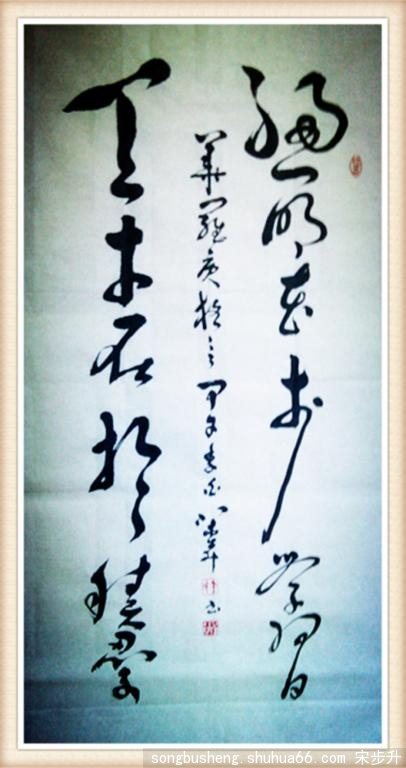 聰明在於學習
天才在於積累
華羅庚格言 甲午春
songbusheng.shuhua66.com 宋步升